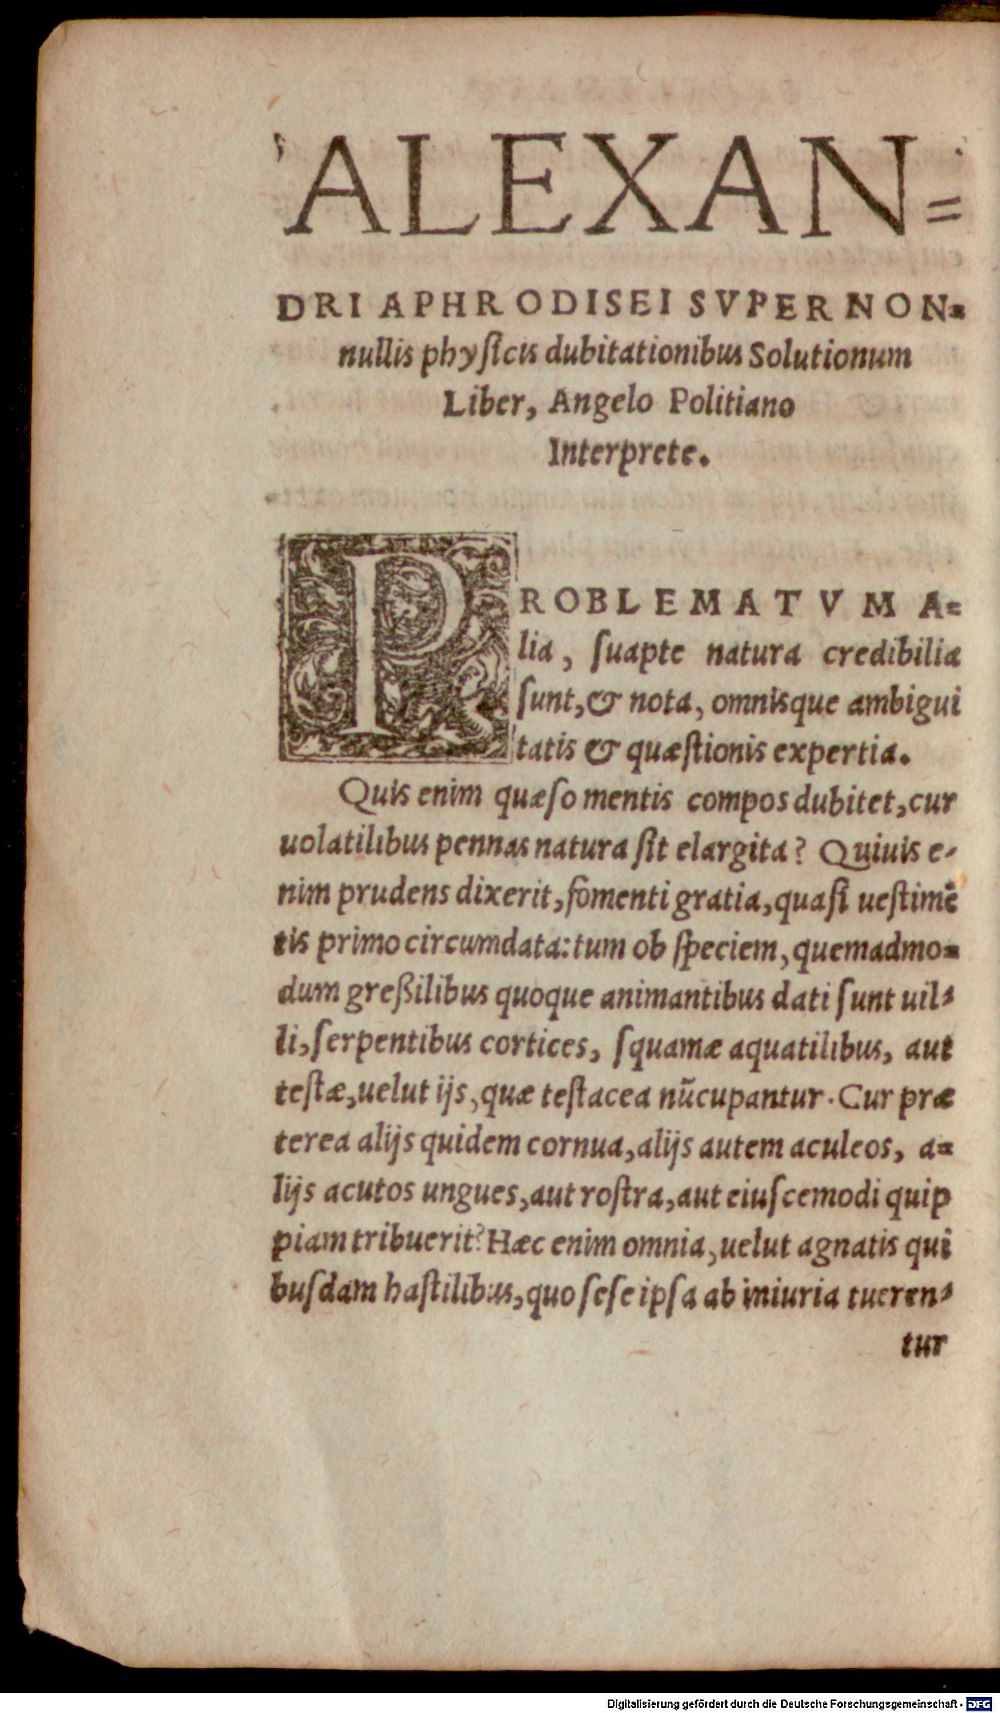 ALEXAN=
DRI APHRODISEI SVPER NON=
nullis phyſicis dubitationibus Solutionum
Liber, Angelo Politiano
Interprete.
PROBLEMATVM A=
lia, ſuapte natura credibilia
ſunt,& nota, omnisque ambigui
tatis & quæſtionis expertia.
Quis enim quæſo mentis compos dubitet,cur
uolatilibus pennas natura ſit elargita? Quiuis e-
nim prudens dixerit,fomenti gratia,quaſi ueſtimē
tis primo circumdata:tum ob ſpeciem,quemadmo=
dum greßilibus quoque animantibus dati ſunt uil-
li,ſerpentibus cortices, ſquamæ aquatilibus, aut
teſtæ,uelut ijs,quæ teſtacea nūcupantur. Cur præ
terea alijs quidem cornua,alijs autem aculeos, a=
lijs acutos ungues,aut roſtra,aut eiuſcemodi quip
piam tribuerit? Hæc enim omnia,uelut agnatis qui
buſdam haſtilibus,quo ſeſe ipſa ab iniuria tueren-
tur
Digitalisierung gefördert durch die Deutsche Forschungsgemeinschaft - DFG